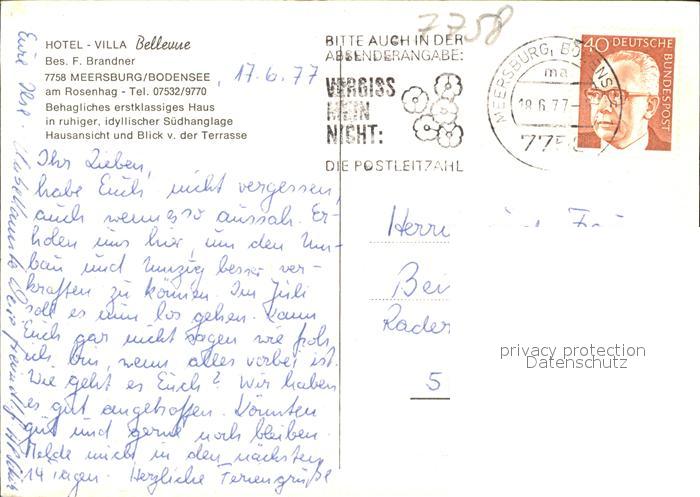 7758
HOTEL - VILLA Bellevue
Bes. F. Brandner
7758 MEERSBURG/BODENSEE
am Rosenhag - Tel. 07532/9770
Behagliches erstklassiges Haus
in ruhiger, idyllischer Südhanglage
Hausansicht und Blick v. der Terrasse
17.6.77
BITTE AUCH IN DER
ABSENDERANGABE:
VERGISS
MEIN
NICHT:
DIE POSTLEITZAHL
MEERSBURG, BODENSEE
ma
18.6.77
775
40 DEUTSCHE
BUNDESPOST
Ihr Lieben,
habe Euch nicht vergessen,
auch wenn es so aussah. Er-
holen uns hier, um den Um-
bau und Umzug besser ver-
kraften zu können. Im Juli
soll es nun los gehen. Kann
Euch gar nicht sagen wie froh
ich bin, wenn alles vorbei ist.
Wie geht es Euch? Wir haben
es gut angetroffen. Könnten
gut und gerne noch bleiben.
Melde mich in den nächsten
14 Tagen. Herzliche Feriengrüße
Eure Ilse
Herrn
Bei
Rader
5
privacy protection
Datenschutz